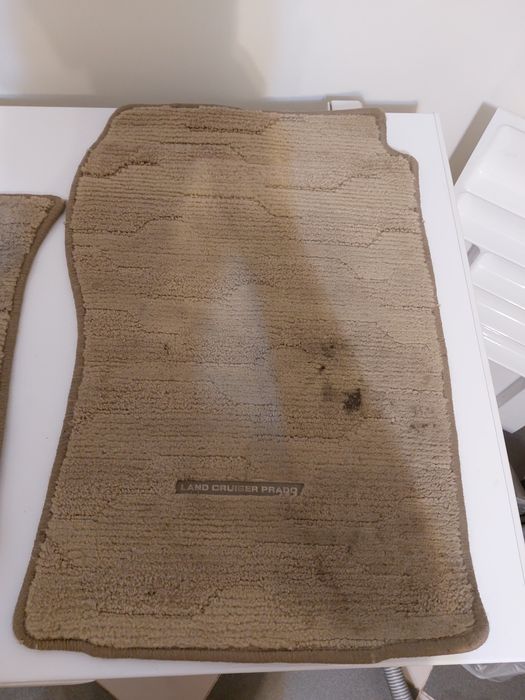 LAND CRUISER PRADO